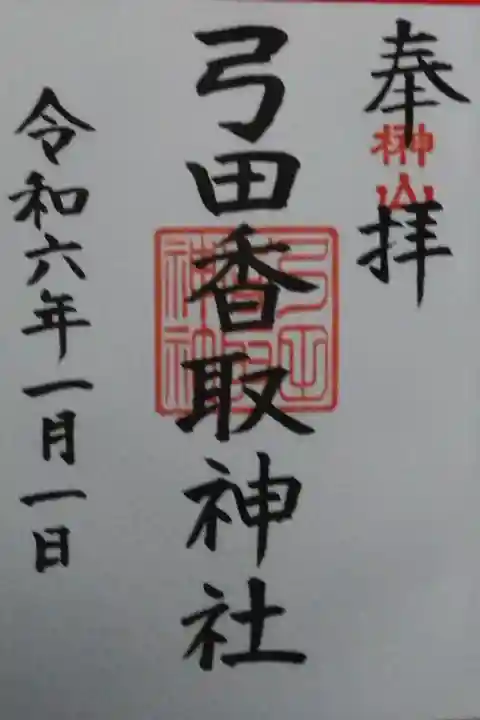 奉拝
榊山
弓田香取神社
令和六年一月一日